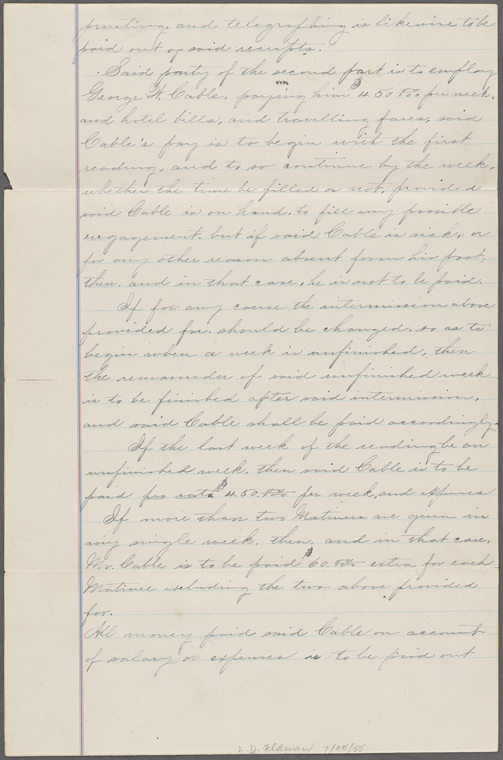 printing, and telegraphing is likewise to be
paid out of said receipts.
Said party of the second part is to employ
George W. Cable, paying him $450.00 per week,
and hotel bills, and travelling fares, said
Cable's pay is to begin with the first
reading, and to so continue by the week,
whether the time be filled or not, provided
said Cable is on hand, to fill any possible
engagement. but if said Cable is sick, or
for any other reason absent from his post,
then, and in that case, he is not to be paid.
If for any cause the intermission above
provided for, should be changed, so as to
begin when a week is unfinished, then
the remainder of said unfinished week
is to be finished after said intermission,
and said Cable shall be paid accordingly.
If the last week of the reading be an
unfinished week, then said Cable is to be
paid pro rata $450.00 per week, and expenses
If more than two Matinees are given in
any single week, then, and in that case,
Mr. Cable is to be paid $60.00 extra for each
Matinee excluding the two above provided
for.
All money paid said Cable on account
of salary or expenses is to be paid out
L. D. Feldman 9/28/55